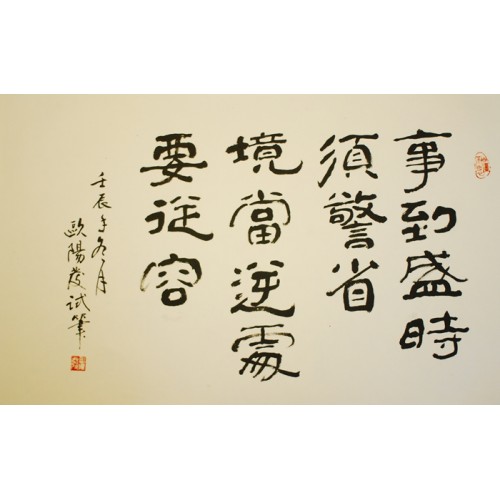 事到盛時
須警省
境當逆處
要從容
壬辰年冬月
歐陽發試筆